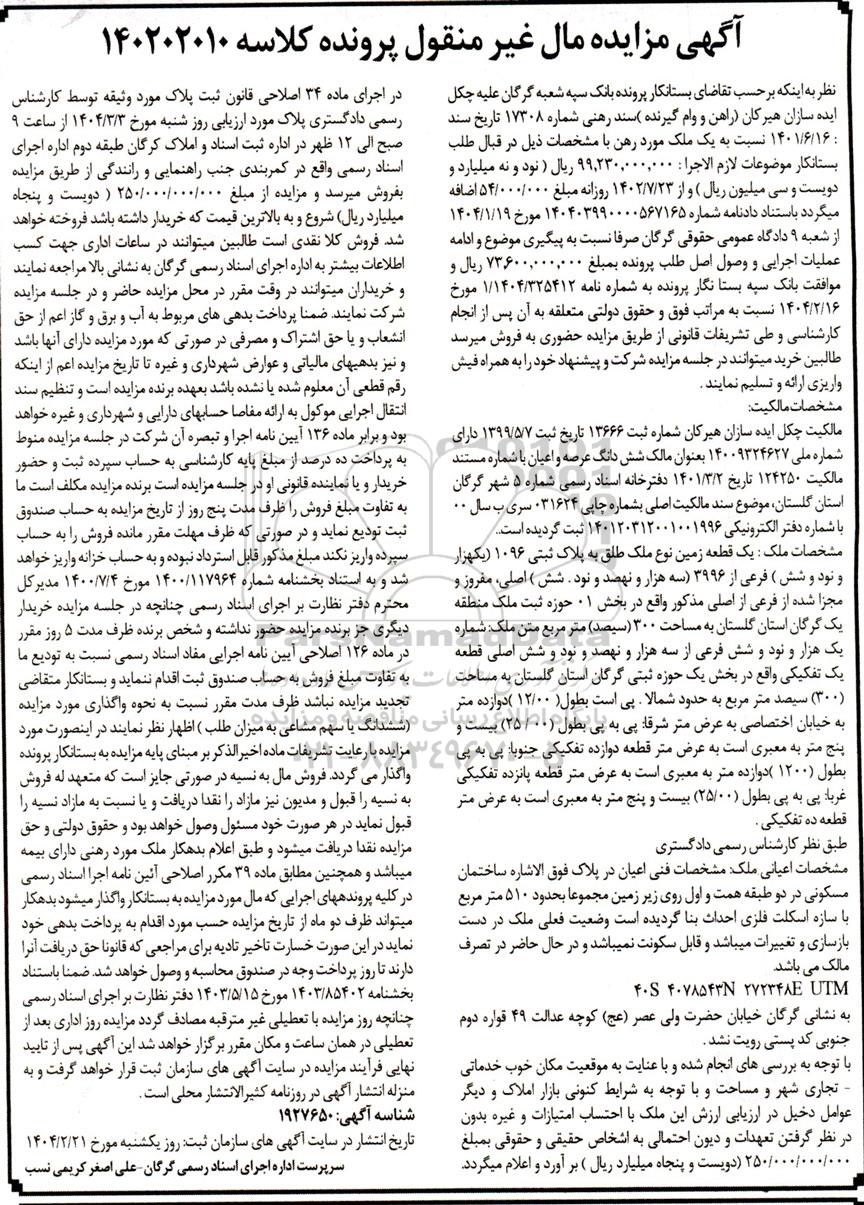 آگهی مزایده مال غیر منقول پرونده کلاسه ۱۴۰۲۰۲۰۱۰
نظر به اینکه بر حسب تقاضای بستانکار پرونده بانک سپه شعبه گرگان علیه چکل
ایده سازان هیرکان (راهن و وام گیرنده )سند رهنی شماره ۱۷۳۰۸ تاریخ سند
: ۱۴۰۱/۶/۱۶ نسبت به یک ملک مورد رهن با مشخصات ذیل در قبال طلب
بستانکار موضوعات لازم الاجرا : ۹۹,۲۳۰,۰۰۰,۰۰۰ ریال ( نود و نه میلیارد و
دویست و سی میلیون ریال ) و از ۱۴۰۲/۷/۲۳ روزانه مبلغ ۵۴/۰۰۰/۰۰۰ اضافه
میگردد باستناد دادنامه شماره ۱۴۰۴۰۳۹۹۰۰۰۰۵۶۷۱۶۵ مورخ ۱۴۰۴/۱/۱۹
از شعبه ۹ دادگاه عمومی حقوقی گرگان صرفا نسبت به پیگیری موضوع و ادامه
عملیات اجرایی و وصول اصل طلب پرونده بمبلغ ۷۳,۶۰۰,۰۰۰,۰۰۰ ریال و
موافقت بانک سپه بستا نگار پرونده به شماره نامه ۱/۱۴۰۴/۳۲۵۴۱۲ مورخ
۱۴۰۴/۲/۱۶ نسبت به مراتب فوق و حقوق دولتی متعلقه به آن پس از انجام
کارشناسی و طی تشریفات قانونی از طریق مزایده حضوری به فروش میرسد
طالبین خرید میتوانند در جلسه مزایده شرکت و پیشنهاد خود را به همراه فیش
واریزی ارائه و تسلیم نمایند .
مشخصات مالکیت:
مالکیت چکل ایده سازان هیرکان شماره ثبت ۱۳۶۶۶ تاریخ ثبت ۱۳۹۹/۵/۷ دارای
شماره ملی ۱۴۰۰۹۳۲۴۶۲۷ بعنوان مالک شش دانگ عرصه و اعیان با شماره مستند
مالکیت ۱۲۴۲۵۰ تاریخ ۱۴۰۱/۳/۲ دفترخانه اسناد رسمی شماره ۵ شهر گرگان
استان گلستان، موضوع سند مالکیت اصلی بشماره چاپی ۰۳۱۶۲۴ سری ب سال ۰۰
با شماره دفتر الکترونیکی ۱۴۰۱۲۰۳۱۲۰۰۱۰۰۱۹۹۶ ثبت گردیده است..
مشخصات ملک : یک قطعه زمین نوع ملک طلق به پلاک ثبتی ۱۰۹۶ (یکهزار
و نود و شش ) فرعی از ۳۹۹۶ (سه هزار و نهصد و نود . شش ) اصلی، مفروز و
مجزا شده از فرعی از اصلی مذکور واقع در بخش ۰۱ حوزه ثبت ملک منطقه
یک گرگان استان گلستان به مساحت ۳۰۰ (سیصد) متر مربع متن ملک: شماره
یک هزار و نود و شش فرعی از سه هزار و نهصد و نود و شش اصلی قطعه
یک تفکیکی واقع در بخش یک حوزه ثبتی گرگان استان گلستان به مساحت
(۳۰۰) سیصد متر مربع به حدود شمالا . پی است بطول( ۱۲/۰۰ )دوازده متر
به خیابان اختصاصی به عرض متر شرقا: پی به پی بطول (۲۵/۰۰) بیست و
پنج متر به معبری است به عرض متر قطعه دوازده تفکیکی جنوبا: پی به پی
بطول (۱۲۰۰ )دوازده متر به معبری است به عرض متر قطعه پانزده تفکیکی
غربا: پی به پی بطول (۲۵/۰۰) بیست و پنج متر به معبری است به عرض متر
قطعه ده تفکیکی .
طبق نظر کارشناس رسمی دادگستری
مشخصات اعیانی ملک: مشخصات فنی اعیان در پلاک فوق الاشاره ساختمان
مسکونی در دو طبقه همت و اول روی زیر زمین مجموعا بحدود ۵۱۰ متر مربع
با سازه اسکلت فلزی احداث بنا گردیده است وضعیت فعلی ملک در دست
بازسازی و تغییرات میباشد و قابل سکونت نمیباشد و در حال حاضر در تصرف
مالک می باشد.
۴۰S ۴۰۷۸۵۴۳N ۲۷۲۳۴۸E UTM
به نشانی گرگان خیابان حضرت ولی عصر (عج) کوچه عدالت ۴۹ قواره دوم
جنوبی کد پستی رویت نشد .
با توجه به بررسی های انجام شده و با عنایت به موقعیت مکان خوب خدماتی
- تجاری شهر و مساحت و با توجه به شرایط کنونی بازار املاک و دیگر
عوامل دخیل در ارزیابی ارزش این ملک با احتساب امتیازات و غیره بدون
در نظر گرفتن تعهدات و دیون احتمالی به اشخاص حقیقی و حقوقی بمبلغ
۲۵۰/۰۰۰/۰۰۰/۰۰۰ (دویست و پنجاه میلیارد ریال ) بر آورد و اعلام میگردد.
در اجرای ماده ۳۴ اصلاحی قانون ثبت پلاک مورد وثیقه توسط کارشناس
رسمی دادگستری پلاک مورد ارزیابی روز شنبه مورخ ۱۴۰۴/۳/۳ از ساعت ۹
صبح الی ۱۲ ظهر در اداره ثبت اسناد و املاک گرگان طبقه دوم اداره اجرای
اسناد رسمی واقع در کمربندی جنب راهنمایی و رانندگی از طریق مزایده
بفروش میرسد و مزایده از مبلغ ۲۵۰/۰۰۰/۰۰۰/۰۰۰ ( دویست و پنجاه
میلیارد ریال) شروع و به بالاترین قیمت که خریدار داشته باشد فروخته خواهد
شد. فروش کلا نقدی است طالبین میتوانند در ساعات اداری جهت کسب
اطلاعات بیشتر به اداره اجرای اسناد رسمی گرگان به نشانی بالا مراجعه نمایند
و خریداران میتوانند در وقت مقرر در محل مزایده حاضر و در جلسه مزایده
شرکت نمایند. ضمنا پرداخت بدهی های مربوط به آب و برق و گاز اعم از حق
انشعاب و یا حق اشتراک و مصرفی در صورتی که مورد مزایده دارای آنها باشد
و نیز بدهیهای مالیاتی و عوارض شهرداری و غیره تا تاریخ مزایده اعم از اینکه
رقم قطعی آن معلوم شده یا نشده باشد بعهده برنده مزایده است و تنظیم سند
انتقال اجرایی موکول به ارائه مفاصا حسابهای دارایی و شهرداری و غیره خواهد
بود و برابر ماده ۱۳۶ آیین نامه اجرا و تبصره آن شرکت در جلسه مزایده منوط
به پرداخت ده درصد از مبلغ پایه کارشناسی به حساب سپرده ثبت و حضور
خریدار و یا نماینده قانونی او در جلسه مزایده است برنده مزایده مکلف است ما
به تفاوت مبلغ فروش را ظرف مدت پنج روز از تاریخ مزایده به حساب صندوق
ثبت تودیع نماید و در صورتی که ظرف مهلت مقرر مانده فروش را به حساب
سپرده واریز نکند مبلغ مذکور قابل استرداد نبوده و به حساب خزانه واریز خواهد
شد و به استناد بخشنامه شماره ۱۴۰۰/۱۱۷۹۶۴ مورخ ۱۴۰۰/۷/۴ مدیر کل
محترم دفتر نظارت بر اجرای اسناد رسمی چنانچه در جلسه مزایده خریدار
دیگری جز برنده مزایده حضور نداشته و شخص برنده ظرف مدت ۵ روز مقرر
در ماده ۱۲۶ اصلاحی آیین نامه اجرایی مفاد اسناد رسمی نسبت به تودیع ما
به تفاوت مبلغ فروش به حساب صندوق ثبت اقدام ننماید و بستانکار متقاضی
تجدید مزایده نباشد ظرف مدت مقرر نسبت به نحوه واگذاری مورد مزایده
(ششدانگ یا سهم مشاعی به میزان طلب ) اظهار نظر نمایند در اینصورت مورد
مزایده با رعایت تشریفات ماده اخیرالذکر بر مبنای پایه مزایده به بستانکار پرونده
واگذار می گردد. فروش مال به نسیه در صورتی جایز است که متعهد له فروش
به نسیه را قبول و مدیون نیز مازاد را نقدا دریافت و یا نسبت به مازاد نسیه را
قبول نماید در هر صورت خود مسئول وصول خواهد بود و حقوق دولتی و حق
مزایده نقدا دریافت میشود و طبق اعلام بدهکار ملک مورد رهنی دارای بیمه
میباشد و همچنین مطابق ماده ۳۹ مکرر اصلاحی آئین نامه اجرا اسناد رسمی
در کلیه پروندههای اجرایی که مال مورد مزایده به بستانکار واگذار میشود بدهکار
میتواند ظرف دو ماه از تاریخ مزایده حسب مورد اقدام به پرداخت بدهی خود
نماید در این صورت خسارت تاخیر تادیه برای مراجعی که قانونا حق دریافت آنرا
دارند تا روز پرداخت وجه در صندوق محاسبه و وصول خواهد شد. ضمنا باستناد
بخشنامه ۱۴۰۳/۸۵۴۰۲ مورخ ۱۴۰۳/۵/۱۵ دفتر نظارت بر اجرای اسناد رسمی
چنانچه روز مزایده با تعطیلی غیر مترقبه مصادف گردد مزایده روز اداری بعد از
تعطیلی در همان ساعت و مکان مقرر برگزار خواهد شد این آگهی پس از تایید
نهایی فرآیند مزایده در سایت آگهی های سازمان ثبت قرار خواهد گرفت و به
منزله انتشار آگهی در روزنامه کثیرالانتشار محلی است .
شناسه آگهی: ۱۹۲۷۶۵۰
تاریخ انتشار در سایت آگهی های سازمان ثبت: روز یکشنبه مورخ ۱۴۰۴/۲/۲۱
سرپرست اداره اجرای اسناد رسمی گرگان -علی اصغر کریمی نسب